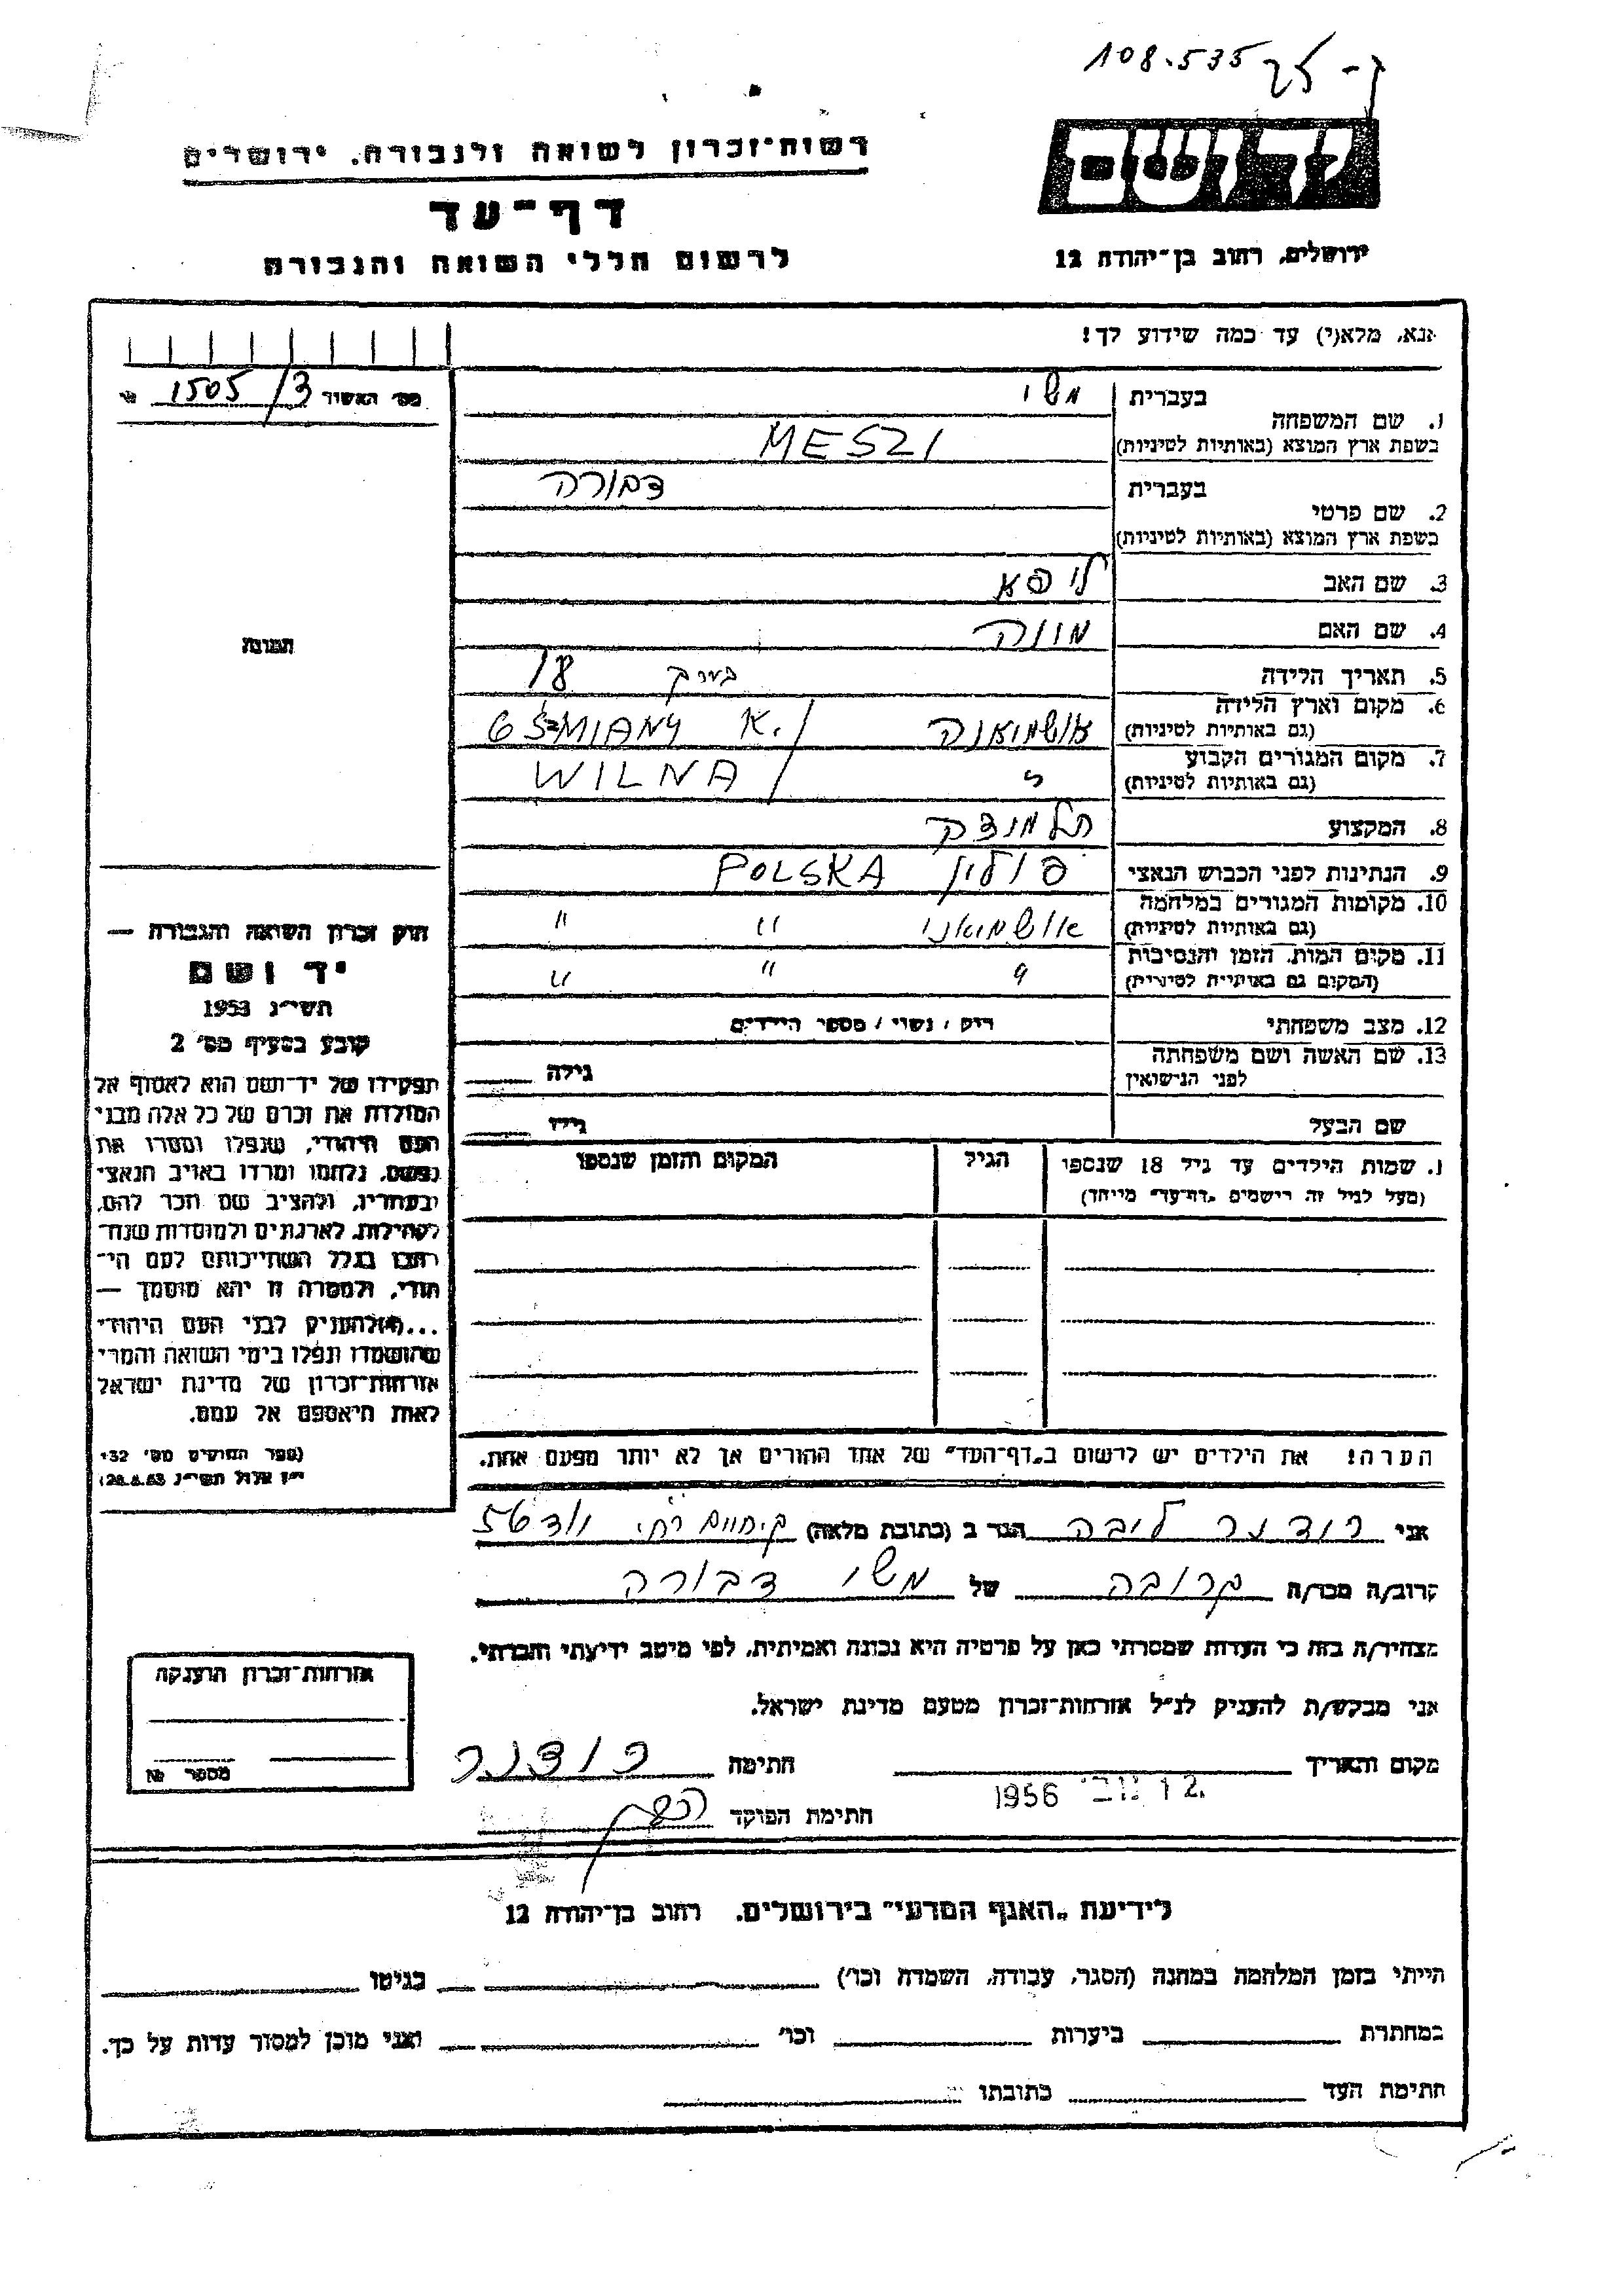 108.535
יד ושם
רשות־זכרון לשואה ולגבורה, ירושלים
דף־עד
לרשום חללי השואה והגבורה
ירושלים, רחוב בן־יהודה 12
אנא, מלא(י) עד כמה שידוע לך!
מס׳ האשיר № 1505/3
1. שם המשפחה
בעברית משי
בשפת ארץ המוצא (באותיות לטיניות) MESZI
2. שם פרטי
בעברית דבורה
בשפת ארץ המוצא (באותיות לטיניות)
3. שם האב ליפא
4. שם האם מוונה
5. תאריך הלידה בערך 18
6. מקום וארץ הלידה
(גם באותיות לטיניות) אושמיאנה OSZMIANY K./
7. מקום המגורים הקבוע
(גם באותיות לטיניות) WILNA/
8. המקצוע תלמידה
9. הנתינות לפני הכבוש הנאצי פולין POLSKA
10. מקומות המגורים במלחמה
(גם באותיות לטיניות) אושמיאני " "
11. מקום המות, הזמן והנסיבות
(המקום גם באותיות לטיניות) " "
12. מצב משפחתי רוק / נשוי / מספר הילדים
13. שם האשה ושם משפחתה
לפני הנישואין גילה
שם הבעל גילו
תמונה
חוק זכרון השואה והגבורה —
יד ושם
תשי״ג 1953
קובע בסעיף מס׳ 2
תפקידו של יד־ושם הוא לאסוף אל
המולדת את זכרם של כל אלה מבני
העם היהודי, שנפלו ומסרו את
נפשם, נלחמו ומרדו באויב הנאצי
ובעוזריו, ולהציב שם וזכר להם,
לקהילות, לארגונים ולמוסדות שנח־
רבו בגלל השתייכותם לעם הי־
הודי, ולמטרה זו יהא מוסמך —
...(4) להעניק לבני העם היהודי
שהושמדו ונפלו בימי השואה והמרי
אזרחות־זכרון של מדינת ישראל
לאות היאספם אל עמם.
(ספר החוקים מס׳ 132
י״ז אלול תשי״ג 28.8.53)
1. שמות הילדים עד גיל 18 שנספו
(מעל לגיל זה רישמים „דף־עד״ מייחד)
הגיל
המקום והזמן שנספו
הערה! את הילדים יש לרשום ב„דף־העד״ של אחד ההורים אך לא יותר מפעם אחת.
אני רודנר ליבה הגר ב (כתובת מלאה) ק.חיים רח׳
קרוב/ה מכר/ה קרובה של משי דבורה
מצהיר/ה בזה כי העדות שמסרתי כאן על פרטיה היא נכונה ואמיתית, לפי מיטב ידיעתי והכרתי.
אני מבקש/ת להעניק לנ״ל אזרחות־זכרון מטעם מדינת ישראל.
מקום ותאריך 12 נוב׳ 1956 חתימה רודנר
חתימת הפוקד
אזרחות־זכרון הוענקה
מספר №
לידיעת „האגף המדעי״ בירושלים, רחוב בן־יהודה 12
הייתי בזמן המלחמה במחנה (הסגר, עבודה, השמדה וכו׳) בגיטו
במחתרת ביערות וכו׳ ואני מוכן למסור עדות על כך.
חתימת העד כתובתו